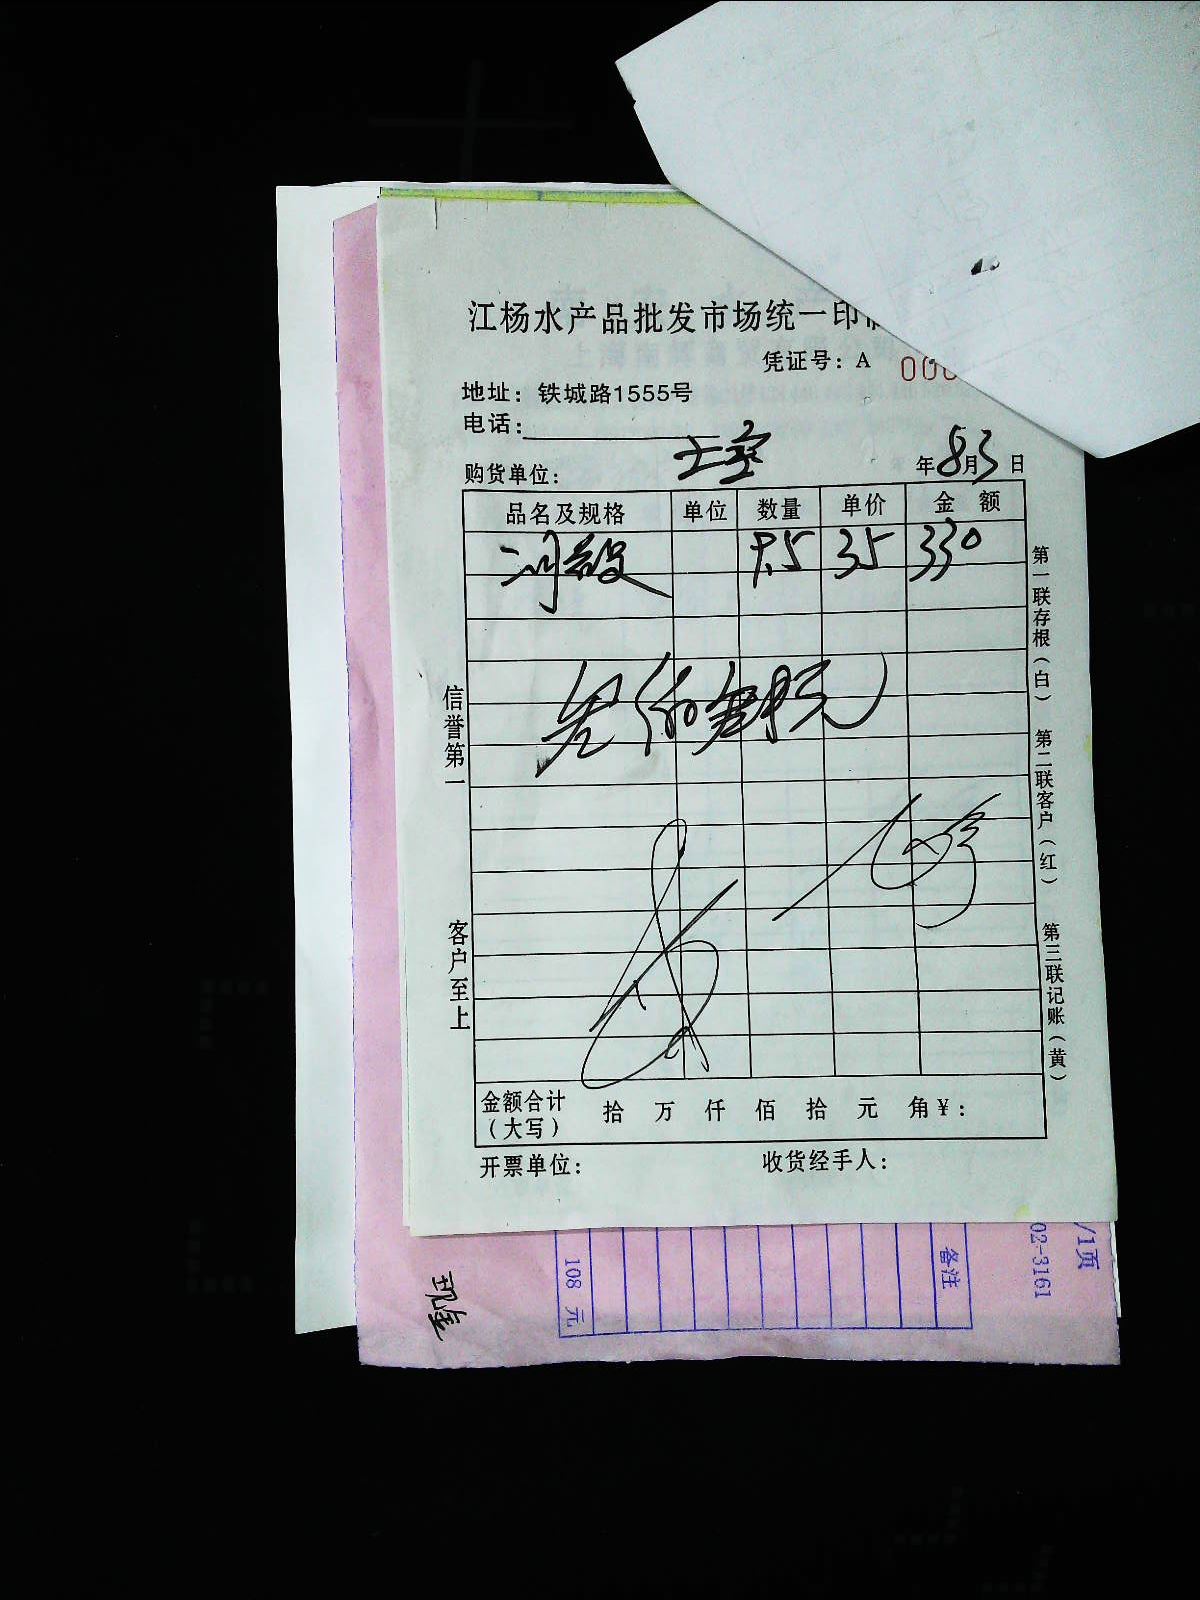 江杨水产品批发市场统一印
凭证号：A 000
地址：铁城路1555号
电话：
购货单位： 年8月3日
品名及规格 单位 数量 单价 金额
9.5 35 330
信誉第一
客户至上
第一联存根（白） 第二联客户（红） 第三联记账（黄）
金额合计（大写） 拾 万 仟 佰 拾 元 角￥：
开票单位： 收货经手人：
现金
108 元
备注
02-3161
/1页